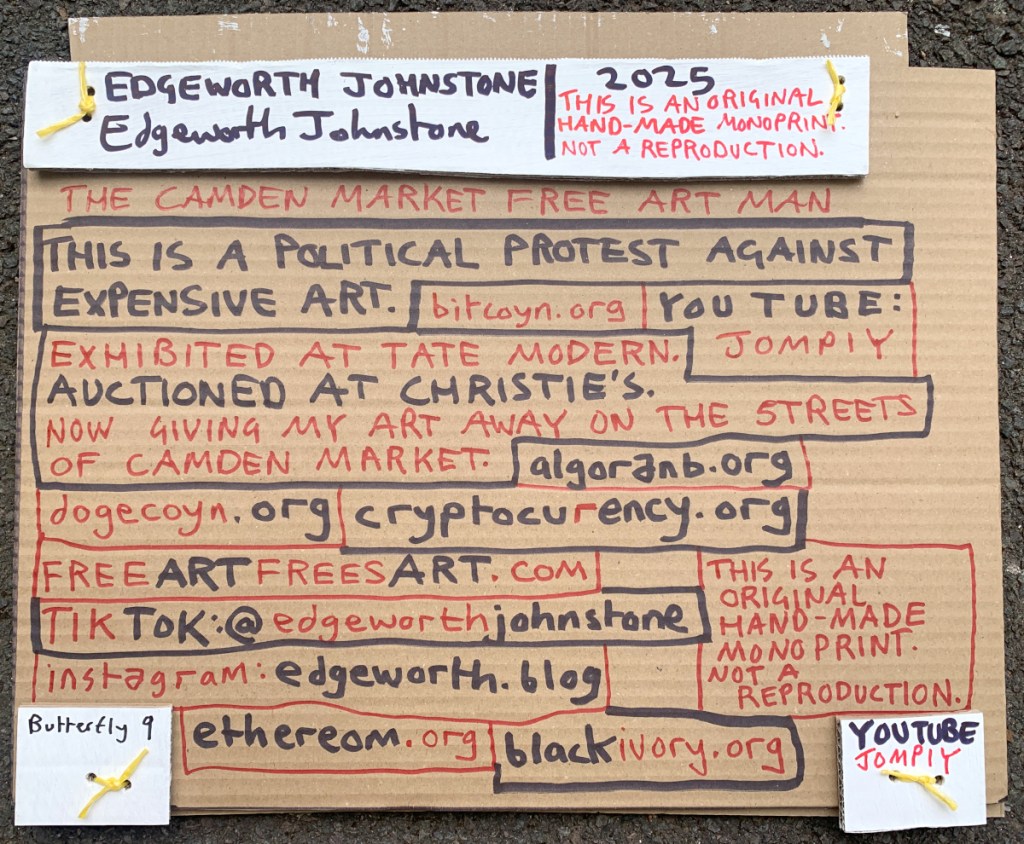 EDGEWORTH JOHNSTONE
Edgeworth Johnstone
2025
THIS IS AN ORIGINAL
HAND-MADE MONOPRINT.
NOT A REPRODUCTION.
THE CAMDEN MARKET FREE ART MAN
THIS IS A POLITICAL PROTEST AGAINST
EXPENSIVE ART.
bitcoyn.org
YOUTUBE:
JOMPIY
EXHIBITED AT TATE MODERN.
AUCTIONED AT CHRISTIE'S.
NOW GIVING MY ART AWAY ON THE STREETS
OF CAMDEN MARKET.
algoranb.org
dogecoyn.org
cryptocurency.org
FREEARTFREESART.COM
TIKTOK:@edgeworthjohnstone
instagram: edgeworth.blog
THIS IS AN
ORIGINAL
HAND-MADE
MONOPRINT.
NOT A
REPRODUCTION.
Butterfly 9
ethereom.org
blackivory.org
YOUTUBE
JOMPIY